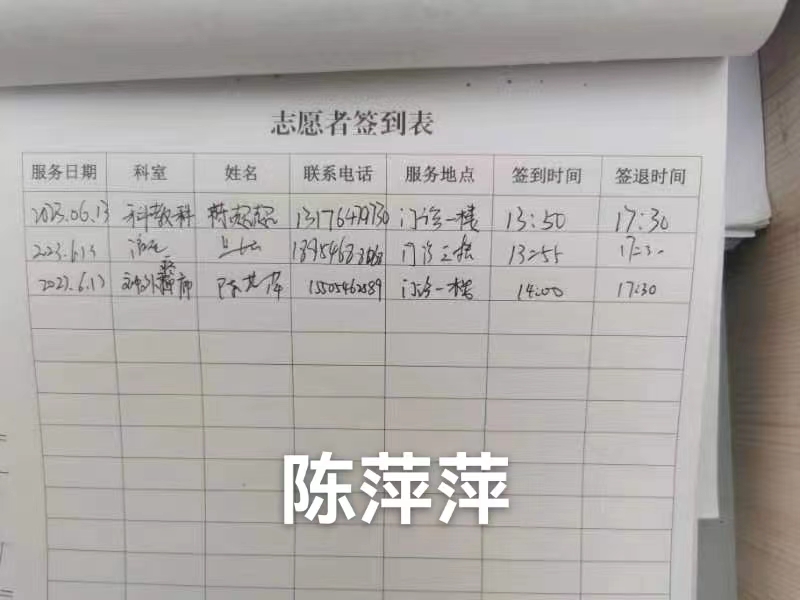 志愿者签到表
服务日期 科室 姓名 联系电话 服务地点 签到时间 签退时间
2023.06.13 科教科 门诊一楼 13:50 17:30
2023.6.13 门诊三楼 13:55 17:30
2023.6.13 陈萍萍 15505462589 门诊一楼 14:00 17:30
陈萍萍